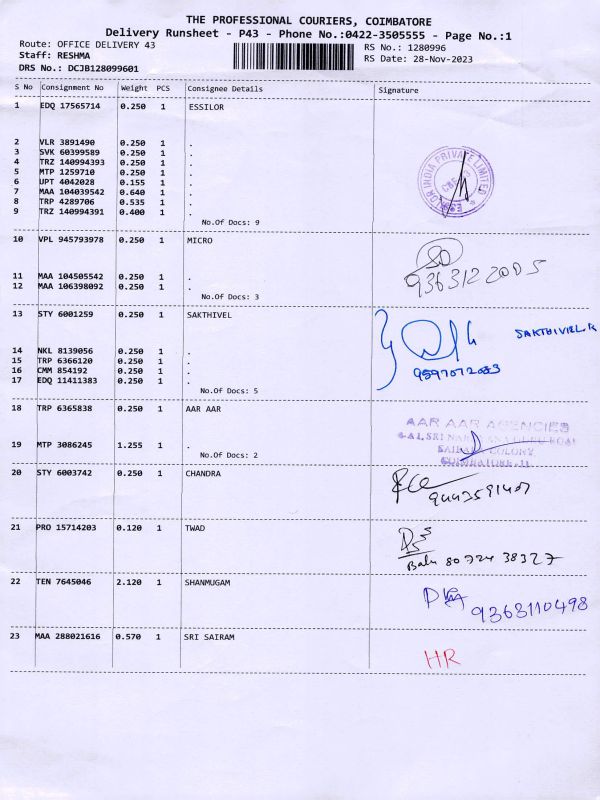 THE PROFESSIONAL COURIERS, COIMBATORE
Delivery Runsheet - P43 - Phone No.:0422-3505555 - Page No.:1
Route: OFFICE DELIVERY 43 RS No.: 1280996
Staff: RESHMA RS Date: 28-Nov-2023
DRS No.: DCJB128099601
S No Consignment No Weight PCS Consignee Details Signature
1 EDQ 17565714 0.250 1 ESSILOR
2 VLR 3891490 0.250 1 .
3 SVK 60399589 0.250 1 .
4 TRZ 140994393 0.250 1 .
5 MTP 1259710 0.250 1 .
6 UPT 4042028 0.155 1 .
7 MAA 104039542 0.640 1 .
8 TRP 4289706 0.535 1 .
9 TRZ 140994391 0.400 1 .
INDIA PRIVATE LIMITED
No.Of Docs: 9
10 VPL 945793978 0.250 1 MICRO
9363122005
11 MAA 104505542 0.250 1 .
12 MAA 106398092 0.250 1 .
No.Of Docs: 3
13 STY 6001259 0.250 1 SAKTHIVEL
SAKTHIVEL.K
14 NKL 8139056 0.250 1 .
15 TRP 6366120 0.250 1 .
16 CMM 854192 0.250 1 .
17 EDQ 11411383 0.250 1 .
No.Of Docs: 5
18 TRP 6365838 0.250 1 AAR AAR
AAR AAR AGENCIES
19 MTP 3086245 1.255 1 .
COLONY
No.Of Docs: 2
20 STY 6003742 0.250 1 CHANDRA
21 PRO 15714203 0.120 1 TWAD
Balu 80724 38327
22 TEN 7645046 2.120 1 SHANMUGAM
9363110498
23 MAA 288021616 0.570 1 SRI SAIRAM
HR